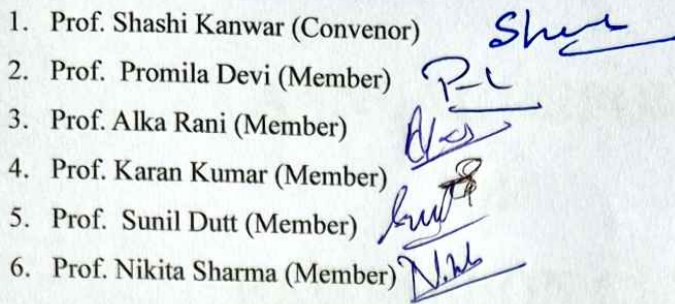 1. Prof. Shashi Kanwar (Convenor)
2. Prof. Promila Devi (Member)
3. Prof. Alka Rani (Member)
4. Prof. Karan Kumar (Member)
5. Prof. Sunil Dutt (Member)
6. Prof. Nikita Sharma (Member)